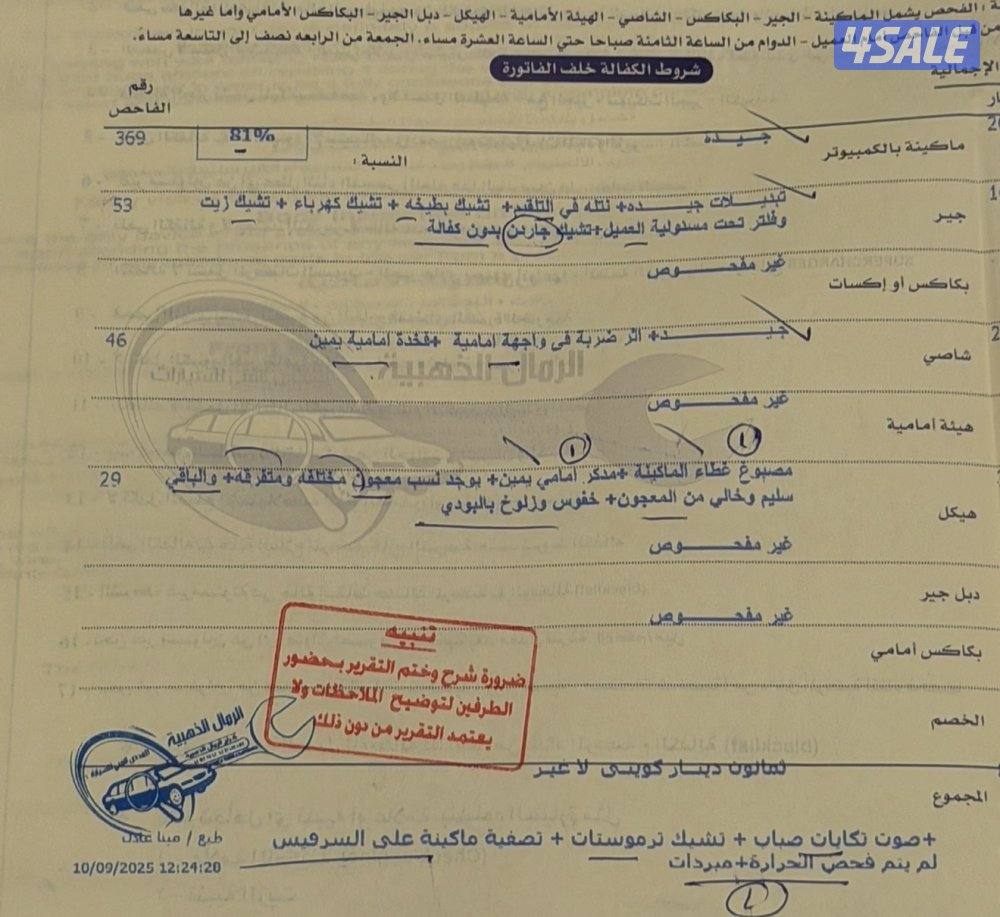 الفحص يشمل الماكينة - الجير - البكاكس - الشاصي - الهيئة الأمامية - الهيكل - دبل الجير - البكاكس الأمامي واما غيرها
من قبل الفاحص امام العميل - الدوام من الساعة الثامنة صباحا حتي الساعة العشرة مساء. الجمعة من الرابعه نصف إلى التاسعة مساء.
4SALE
شروط الكفالة خلف الفاتورة
الإجمالية
رقم الفاحص
ماكينة بالكمبيوتر
جيـــدة
81%
369
النسبة :
جير
تبديـــلات جيـــده+ نتله في التلقيم+ تشيك بطيخه + تشيك كهرباء + تشيك زيت
53
وفلتر تحت مسئولية العميل+تشيك جاردن بدون كفالة
بكاكس أو إكسات
غير مفحـــوص
شاصي
جيـــد+ اثر ضربة في واجهة امامية +فخدة امامية يمين
46
الرمال الذهبية
هيئة أمامية
غير مفحـــوص
هيكل
مصبوغ غطاء الماكينة +مدكر امامي يمين+ يوجد نسب معجون مختلفه ومتفرقه+ والباقي
29
سليم وخالي من المعجون+ خفوس وزلوخ بالبودي
غير مفحـــوص
دبل جير
غير مفحـــوص
بكاكس أمامي
تنبيه
ضرورة شرح وختم التقرير بحضور
الطرفين لتوضيح الملاحظات ولا
يعتمد التقرير من دون ذلك
الخصم
الرمال الذهبية
ثمانون دينار كويتى لا غير
المجموع
+صوت تكايات صباب + تشيك ترموستات + تصفية ماكينة على السرفيس
طبع / مينا عادل
لم يتم فحص الحرارة+مبردات
10/09/2025 12:24:20